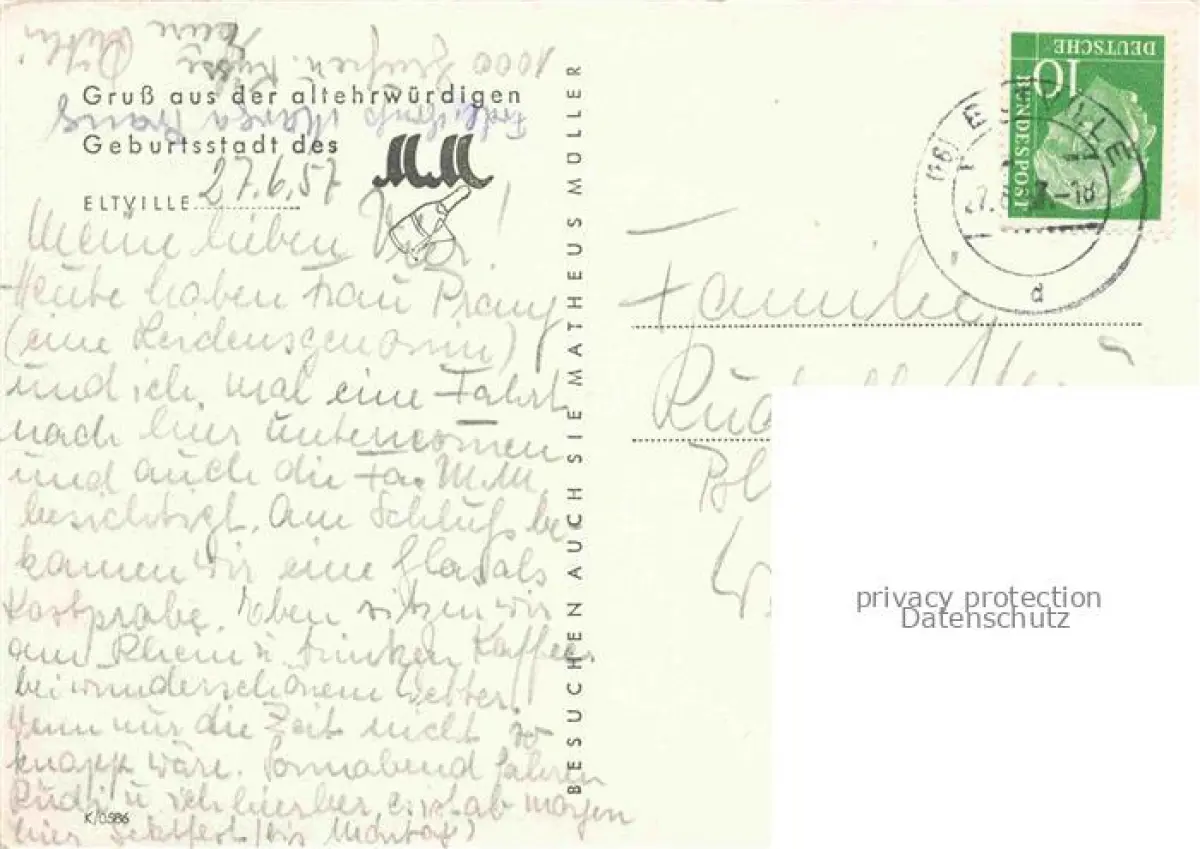 Gruß aus der altehrwürdigen
Geburtsstadt des MM
ELTVILLE 27.6.57
Meine lieben !
Heute haben Frau Prang
(eine Leidensgenossin)
und ich mal eine Fahrt
nach hier unternommen
und auch die Fa. M.M.
besichtigt. Am Schluß be-
kamen wir eine Glas als
Kostprobe. Eben sitzen wir
am Rhein u. trinken Kaffee
bei wunderschönem Wetter.
Wenn nur die Zeit nicht so
knapp wäre. Sonnabend fahren
Rudi u. ich hierher, es ist ab morgen
hier Sektfest (bis Montag)
1000 Küsse
Marga Prang
K/0586
BESUCHEN AUCH SIE MATHEUS MÜLLER
DEUTSCHE
BUNDESPOST
10
(16) ELTVILLE
-18
d
Familie
privacy protection
Datenschutz